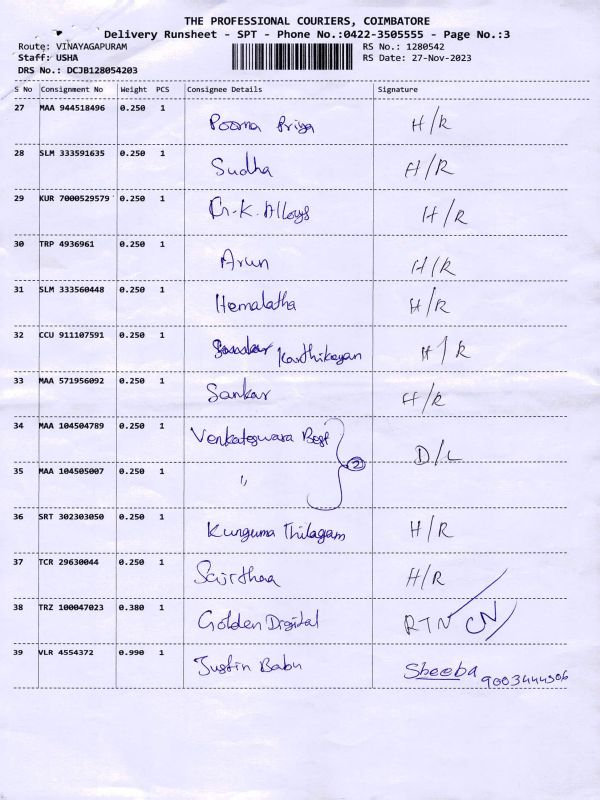 THE PROFESSIONAL COURIERS, COIMBATORE
Delivery Runsheet - SPT - Phone No.:0422-3505555 - Page No.:3
Route: VINAYAGAPURAM RS No.: 1280542
Staff: USHA RS Date: 27-Nov-2023
DRS No.: DCJB128054203
S No Consignment No Weight PCS Consignee Details Signature
27 MAA 944518496 0.250 1 Poorna Priya H/R
28 SLM 333591635 0.250 1 Sudha H/R
29 KUR 7000529579 0.250 1 K. Alloys H/R
30 TRP 4936961 0.250 1 Arun H/R
31 SLM 333560448 0.250 1 Hemalatha H/R
32 CCU 911107591 0.250 1 Karthikeyan H/R
33 MAA 571956092 0.250 1 Sankar H/R
34 MAA 104504789 0.250 1 Venkateswara D/L
35 MAA 104505007 0.250 1 " 2
36 SRT 302303050 0.250 1 Kunguma Thilagam H/R
37 TCR 29630044 0.250 1 H/R
38 TRZ 100047023 0.380 1 Golden Digital RTN CN
39 VLR 4554372 0.990 1 Justin Babu Sheeba